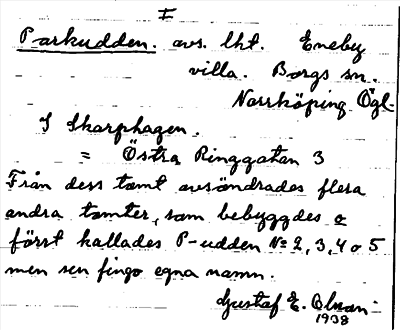 I
Parkudden. avs. lht. Eneby
villa. Borgs sn.
Norrköping Ögl.
I Skarphagen.
= Östra Ringgatan 3
Från dess tomt avsöndrades flera
andra tomter, som bebyggdes o
först kallades P-udden No 2, 3, 4 o 5
men sen fingo egna namn.
Gustaf E. Olsson
1938